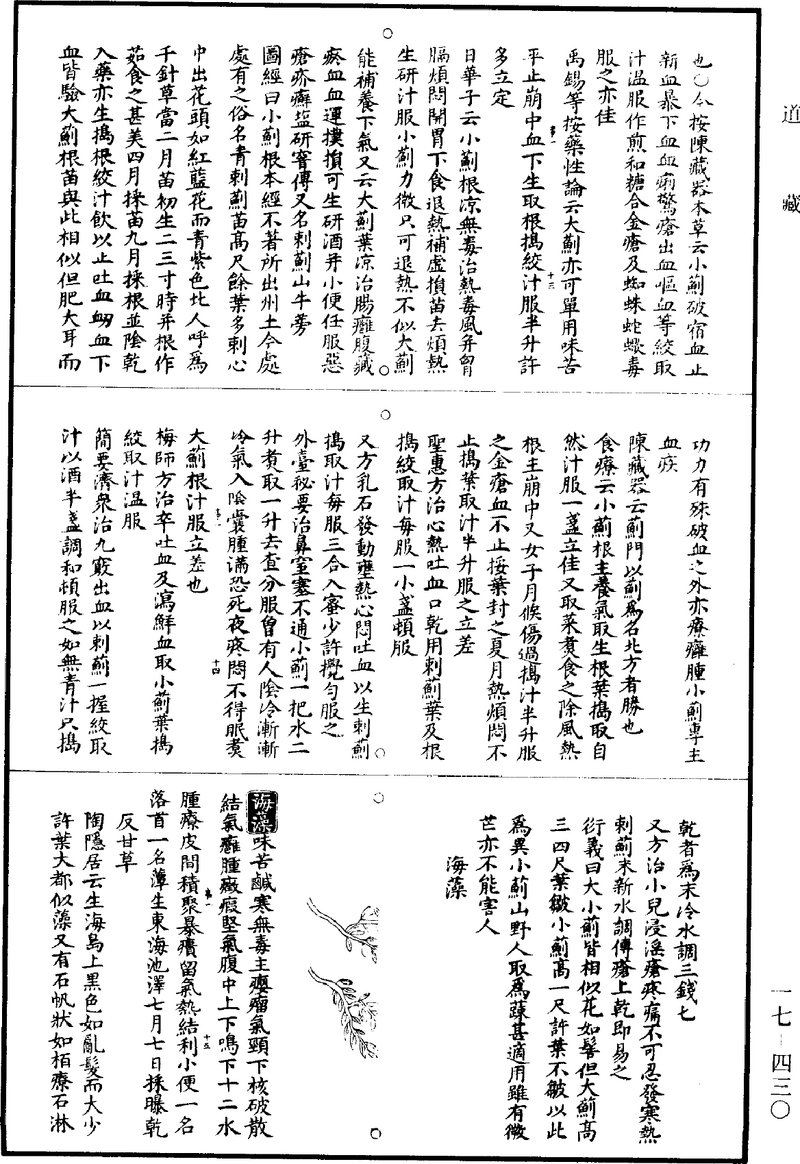 道藏
也○今按陳藏器本草云小薊破宿血止
新血暴下血血痢驚瘡出血嘔血等絞取
汁温服作煎和糖合金瘡及蜘蛛蛇蠍毒
服之亦佳
禹錫等按藥性論云大薊亦可單用味苦
平止崩中血下生取根搗絞汁服半升許
多立定
日華子云小薊根凉無毒治熱毒風并胷
膈煩悶開胃下食退熱補虛損苗去煩熱
生研汁服小薊力微只可退熱不似大薊
能補養下氣又云大薊葉凉治腸癰腹藏
瘀血血運撲損可生研酒并小便任服惡
瘡疥癬塩研窨傅又名刺薊山牛蒡
圖經曰小薊根本經不著所出州土今處
處有之俗名青刺薊苗高尺餘葉多刺心
中出花頭如紅藍花而青紫色北人呼爲
千針草當二月苗初生二三寸時并根作
茹食之甚美四月採苗九月採根並陰乾
入藥亦生搗根絞汁飲以止吐血衂血下
血皆驗大薊根苗與此相似但肥大耳而
十三
功力有殊破血之外亦療癰腫小薊專主
血疾
陳藏器云薊門以薊爲名北方者勝也
食療云小薊根主養氣取生根葉搗取自
然汁服一盞立佳又取菜煑食之除風熱
根主崩中又女子月候傷過搗汁半升服
之金瘡血不止挼葉封之夏月熱煩悶不
止搗葉取汁半升服之立差
聖惠方治心熱吐血口乾用刺薊葉及根
搗絞取汁每服一小盞頓服
又方乳石發動壅熱心悶吐血以生刺薊
搗取汁每服三合入蜜少許攪勻服之
外臺秘要治鼻窒塞不通小薊一把水二
升煑取一升去查分服曾有人陰冷漸漸
冷氣入陰囊腫滿恐死夜疼悶不得眠煑
大薊根汁服立差也
梅師方治卒吐血及瀉鮮血取小薊葉搗
絞取汁温服
簡要濟衆治九竅出血以刺薊一握絞取
汁以酒半盞調和頓服之如無青汁只搗
十四
乾者爲末冷水調三錢匕
又方治小兒浸淫瘡疼痛不可忍發寒熱
刺薊末新水調傅瘡上乾即易之
衍義曰大小薊皆相似花如髻但大薊高
三四尺葉皺小薊高一尺許葉不皺以此
爲異小薊山野人取爲蔬甚適用雖有微
芒亦不能害人
海藻
海藻味苦鹹寒無毒主癭瘤氣頸下核破散
結氣癰腫癥瘕堅氣腹中上下鳴下十二水
腫療皮間積聚暴㿉留氣熱結利小便一名
落首一名薚生東海池澤七月七日採曝乾
反甘草
陶隱居云生海島上黑色如亂髮而大少
許葉大都似藻又有石帆狀如栢療石淋
十五
一七-四三〇